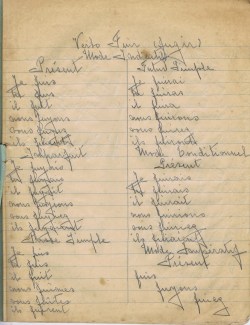 Verbo Fuir (fugir)
Mode Indicatif
Présent
Je fuis
tu fuis
il fuit
nous fuyons
vous fuyez
ils fuient
Imparfait
Je fuyais
tu fuyais
il fuyait
nous fuyions
vous fuyiez
ils fuyaient
Passé Simple
Je fuis
tu fuis
il fuit
nous fuîmes
vous fuîtes
ils fuirent
Futur Simple
Je fuirai
tu fuiras
il fuira
nous fuirons
vous fuirez
ils fuiront
Mode Conditionnel
Présent
Je fuirais
tu fuirais
il fuirait
nous fuirions
vous fuiriez
ils fuiraient
Mode Impératif
Présent
fuis
fuyons
fuyez